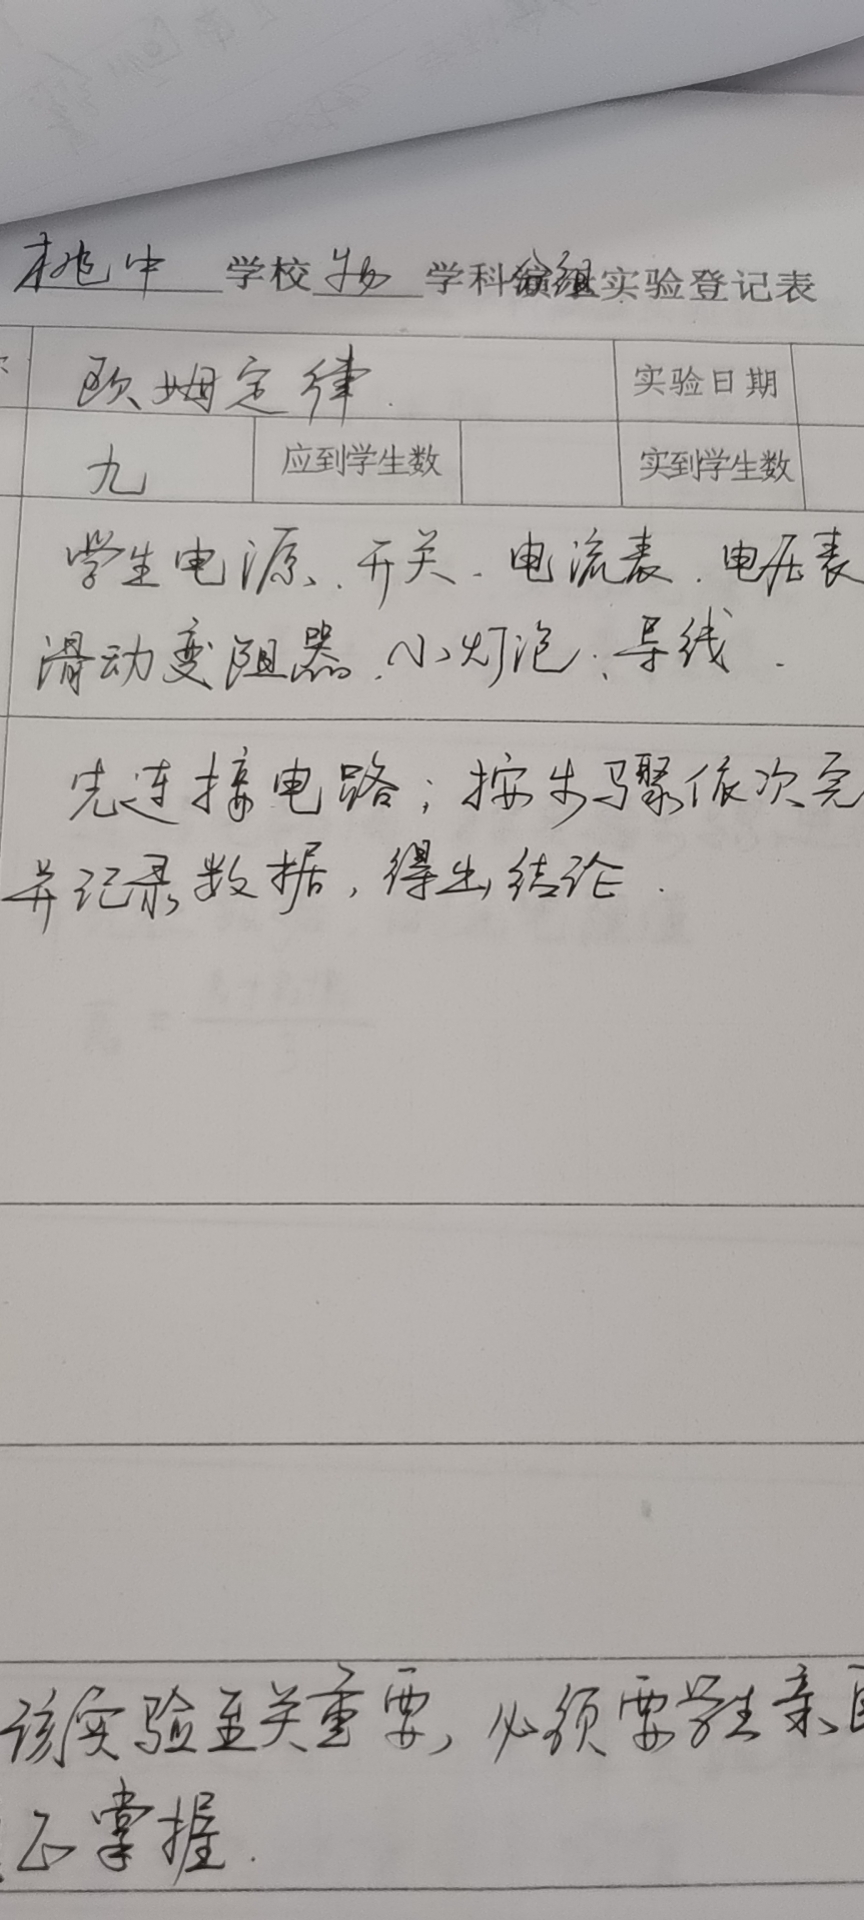 桃中 学校 物 学科分组实验登记表
欧姆定律. 实验日期
九 应到学生数 实到学生数
学生电源、开关、电流表、电压表
滑动变阻器、小灯泡、导线.
先连接电路；按步骤依次完
并记录数据，得出结论.
该实验至关重要，必须要学生亲
正掌握.